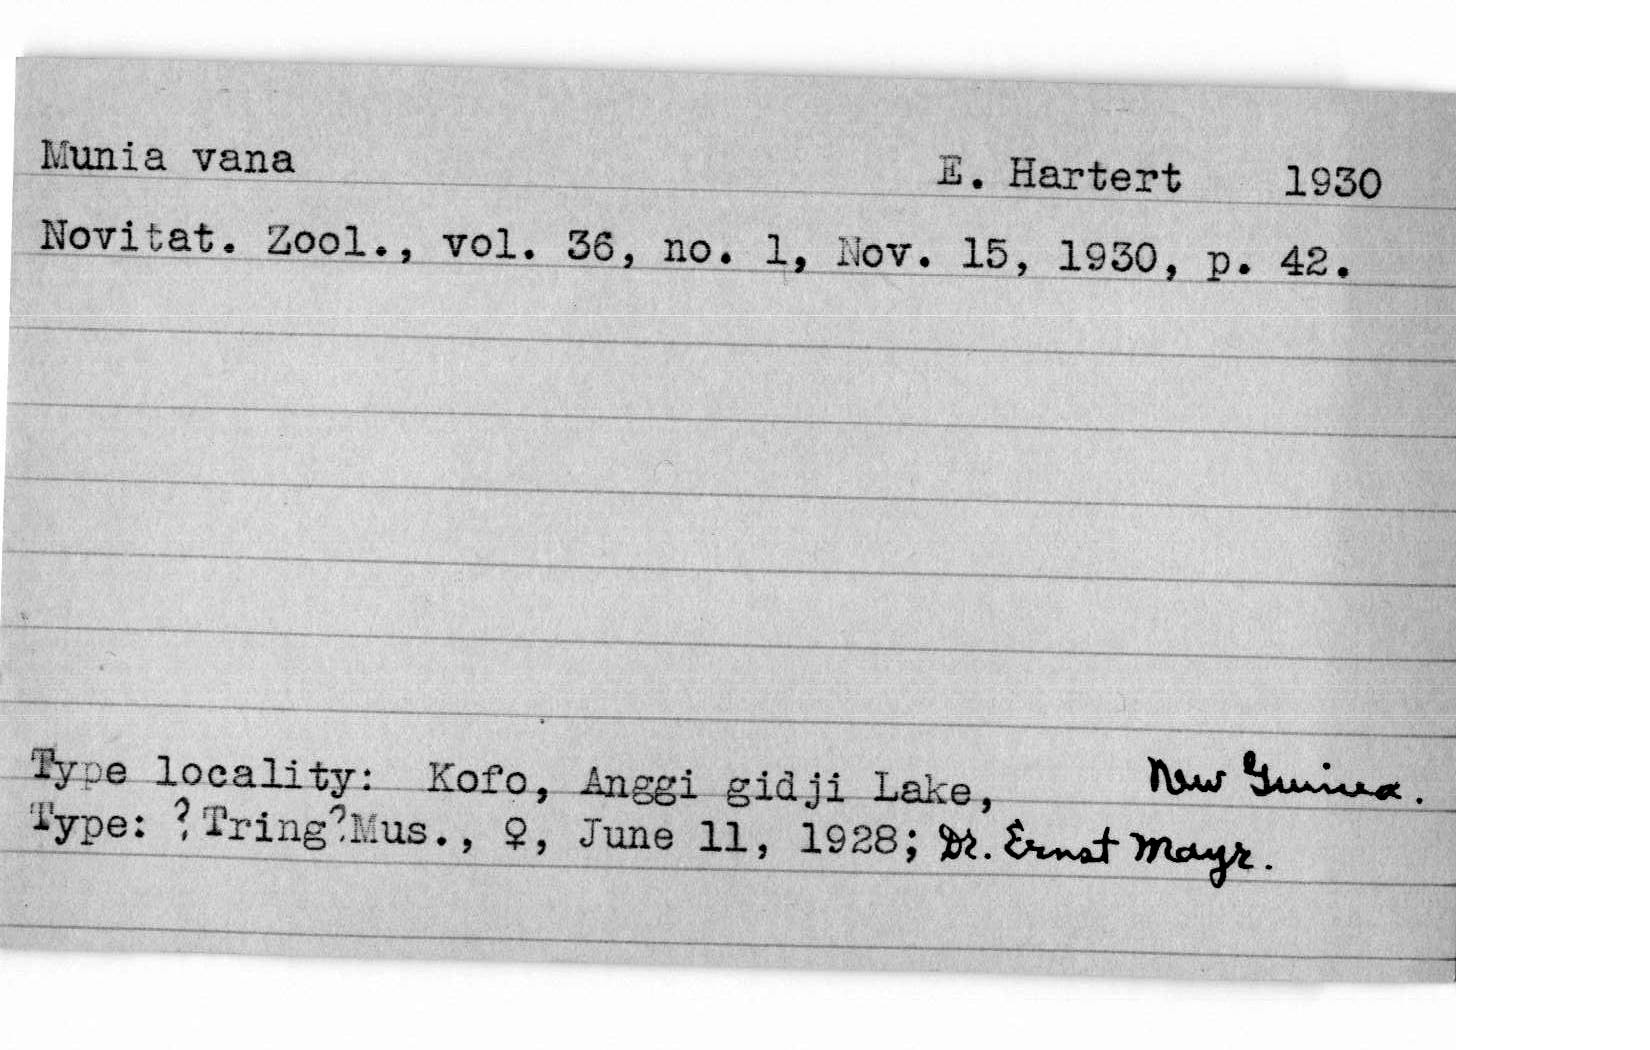 Munia vana E. Hartert 1930
Novitat. Zool., vol. 36, no. 1, Nov. 15, 1930, p. 42.
Type locality: Kofo, Anggi gidji Lake, New Guinea.
Type: ?Tring?Mus., ♀, June 11, 1928; Dr. Ernst Mayr.